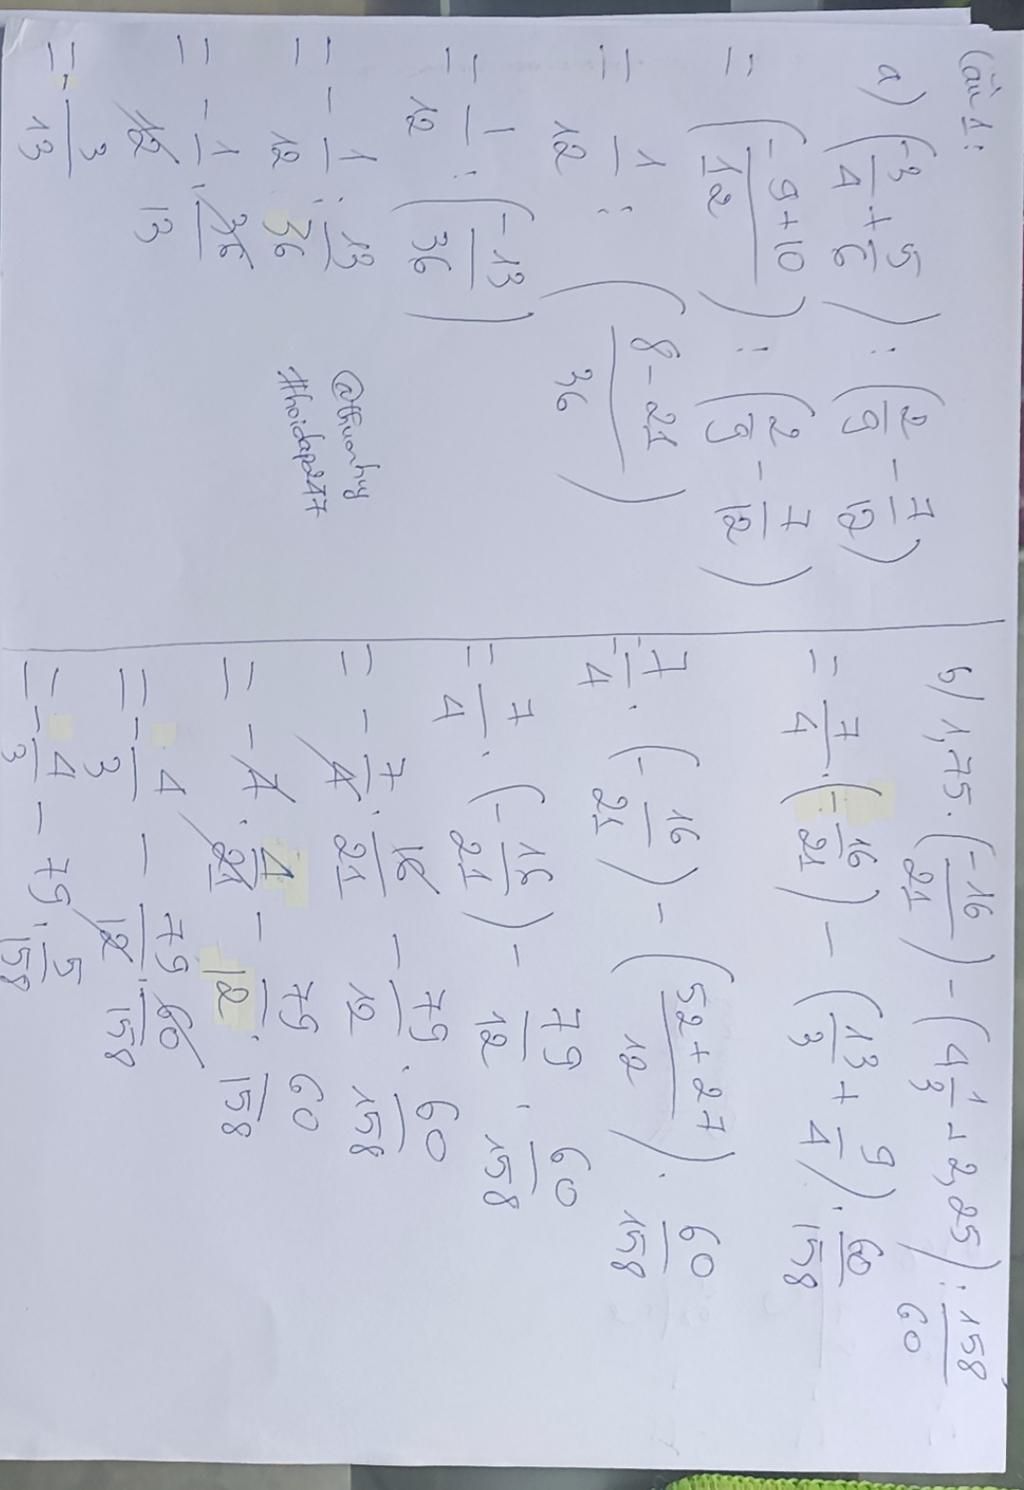 Câu 1:
a) (-3/4 + 5/6) : (2/9 - 7/12)
= (-9+10/12) : (2/9 - 7/12)
= 1/12 : (8-21/36)
= 1/12 : (-13/36)
= - 1/12 : 13/36
= - 1/12 . 36/13
= - 3/13
@thuonhy
#hoidap247
b) 1,75 . (-16/21) - (4 1/3 + 2,25) : 158/60
= 7/4 . (- 16/21) - (13/3 + 9/4) . 60/158
= 7/4 . (- 16/21) - (52+27/12) . 60/158
= 7/4 . (- 16/21) - 79/12 . 60/158
= - 7/4 . 16/21 - 79/12 . 60/158
= - 7 . 4/21 - 79/12 . 60/158
= - 4/3 - 79/12 . 60/158
= - 4/3 - 79 . 5/158